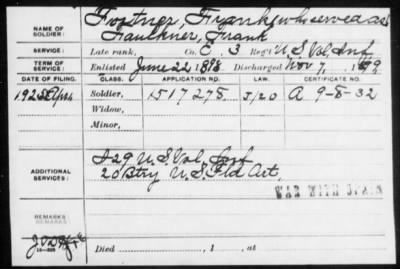 NAME OF SOLDIER: Fostner, Frank who served as
Faulkner, Frank
SERVICE: Late rank, Co. E. 3 Reg't U.S. Vol. Inf.
TERM OF SERVICE: Enlisted June 22 1898 Discharged Nov 7, 1899
DATE OF FILING. CLASS. APPLICATION NO. LAW. CERTIFICATE NO.
1925 Apr 4 Soldier, 1517278. 5/20 A 9-8-32
Widow,
Minor,
ADDITIONAL SERVICES: I 29 U.S. Vol. Inf
20 Btry U.S. Fld Art,
WAR WITH SPAIN
REMARKS
Died , 1 , at